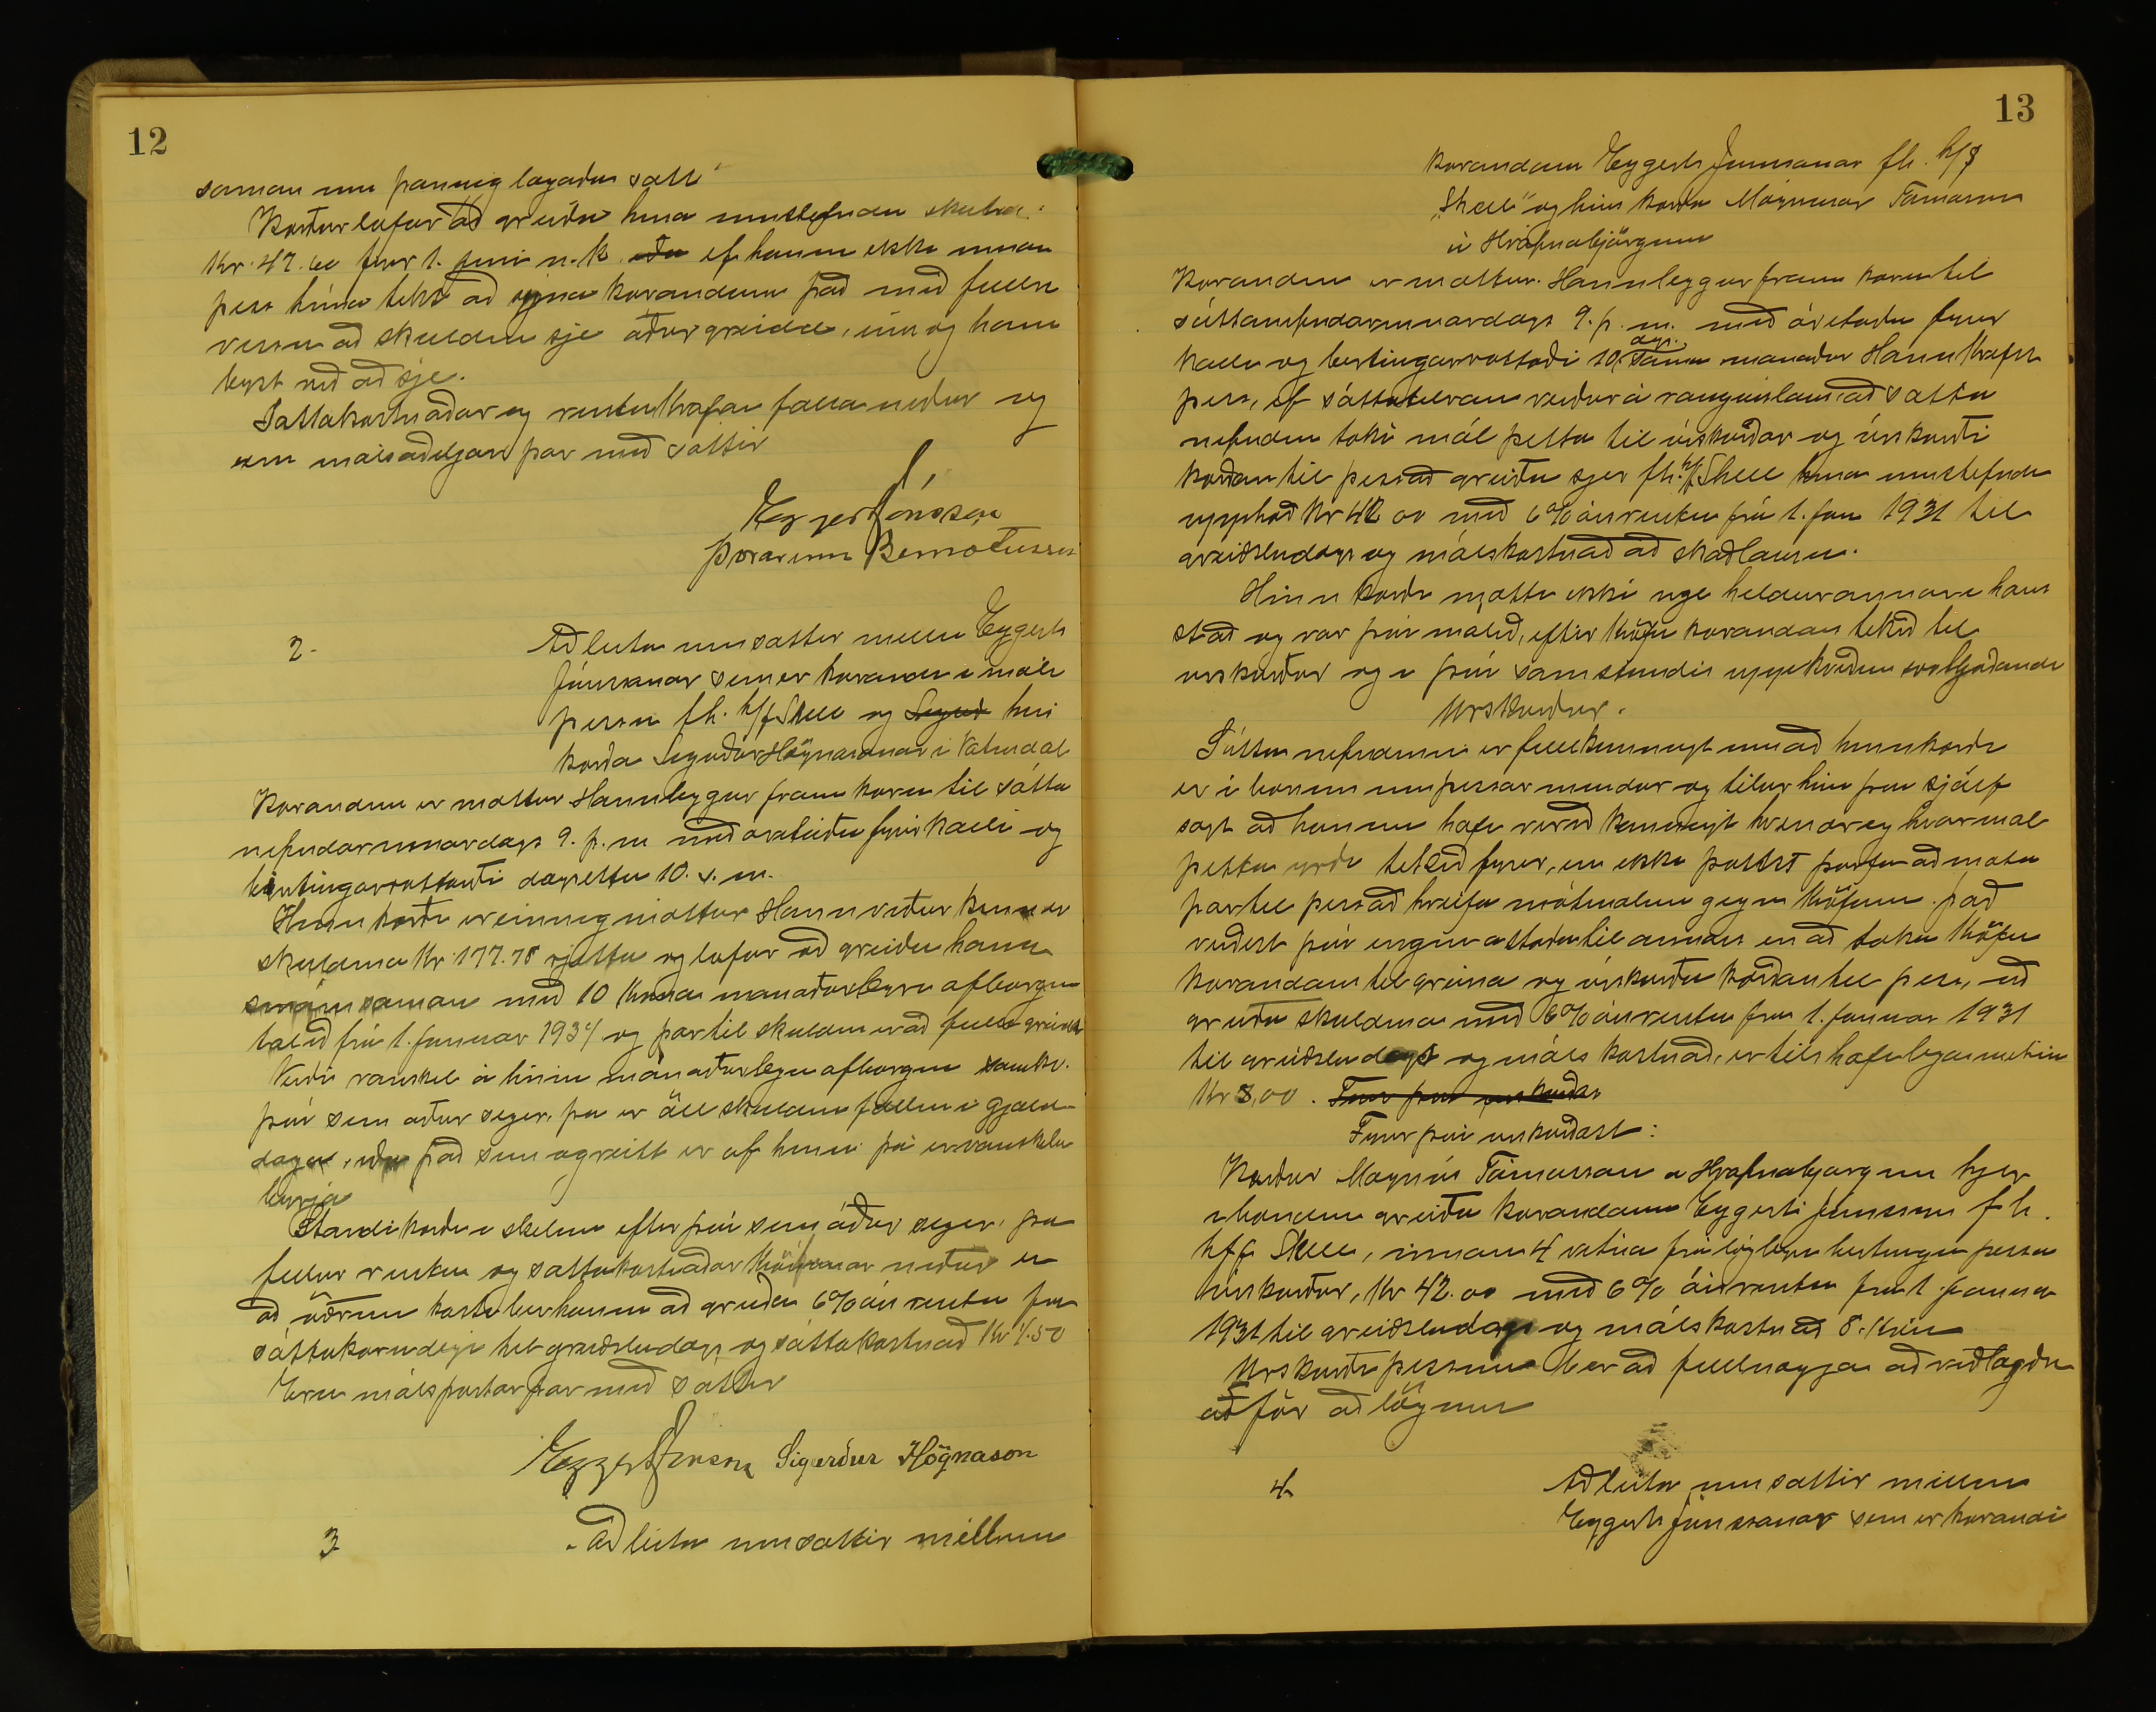 12
saman um þannig lagaða sátt:
Kærður lofar að greiða hina umstefndu skuld
Kr. 47.60 fyrir 1. júní n.k. eða ef honum ekki innan
þess tíma tekst að sýna kærandanum það með fullri
vissu að skuldin sje áður greidd, eins og hann
legst við að sje.
Sáttakostnaðar og rentukrafan falla niður og
eru málsaðiljar þar með sáttir
Eggert Jónsson
Þórarinn Bernótusson
2.
Að leita um sáttir milli Eggerts
Jónssonar sem er kærandi í máli
þessu f.h. h/f Shell og hins
kærða Sigurðar Högnasonar í Vatnsdal
Kærandinn er mættur. Hann leggur fram kæru til sátta
nefndarinnar dags 9. þ.m. með áteiknuðu fyrirkalli og
birtingarvottorði dagsettu 10. s.m.
Hinn kærði er einnig mættur. Hann viðurkennir
skuldina Kr. 177.78 rjetta og lofar að greiða hana
smám saman með 10 króna mánaðarlegri afborgun
talið frá 1. janúar 1934 og þar til skuldin er að fullu greidd
Verði vanskil á hinni mánaðarlegu afborgun samkv.
því sem áður segir, þá er öll skuldin fallin í gjald-
daga, eða það sem ógreitt er af henni þá er vanskilin
byrja
Standi kærði í skilum eftir því sem áður segir, þá
fellur rentu og sáttakostnaðar krafan niður en
að öðrum kosti ber honum að greiða 6% ársrentu frá
sáttakærudegi til greiðsludags og sáttakostnað Kr 4.50
Eru málspartar þar með sáttir
Eggert Jónsson Sigurður Högnason
3
Að leita um sáttir millum
13
kærandans Eggerts Jónssonar f.h. h/f
"Shell" og hins kærða Magnúsar Tómassonar
á Hrafnabjörgum
Kærandinn er mættur. Hann leggur fram kæru til
sáttanefndarinnar dags 9. þ.m. með áritaðu fyrir
kalli og birtingarvottorði 10. dag. sama mánaðar. Hann krefst
þess, ef sáttatilraun verður árangurslaus, að sátta
nefndin taki mál þetta til úrskurðar og úrskurði
kærðan til þess að greiða sjer f.h. h/f Shell hina umstefndu
upphæð Kr 42 00 með 6% ársrentu frá 1. jan 1931 til
greiðsludags og málskostnað að skaðlausu.
Hinn kærði mætti ekki nje heldur annar í hans
stað og var því málið, eftir kröfu kærandans tekið til
úrskurðar og í því samstundis uppkveðinn svohljóðandi
Úrskurður.
Sáttanefndinni er fullkunnugt um að hinn kærði
er í bænum um þessar mundir og telur hún það sjálf
sagt að honum hafi verið kunnugt hvenær og hvar mál
þetta yrði tekið fyrir, en ekki þótst þurfa að mæta
þar til þess að hreifa mótmælum gegn kröfunni. það
verður því engin ástæða til annars en að taka kröfu
kærandans til greina og úrskurða kærðan til þess, að
greiða skuldina með 6% ársrentu frá 1. janúar 1931
til greiðsludags og máls kostnað, er telst hæfilega metinn
Kr 8,00.
Fyrir því úrskurðast:
Kærður Magnús Tómasson á Hrafnabjörgum hjer
í bænum greiði kærandanum Eggerti Jónssyni f h.
h/f Shell, innan 4 vikna frá löglegri birtingu þessa
úrskurðar, Kr 42.00 með 6% ársrentu frá 1. janúar
1931 til greiðsludags og málskostnað 8. krónur
Úrskurði þessum ber að fullnægja að viðlagðri
aðför að lögum
4
Að leita um sáttir millum
Eggerts Jónssonar sem er kærandi